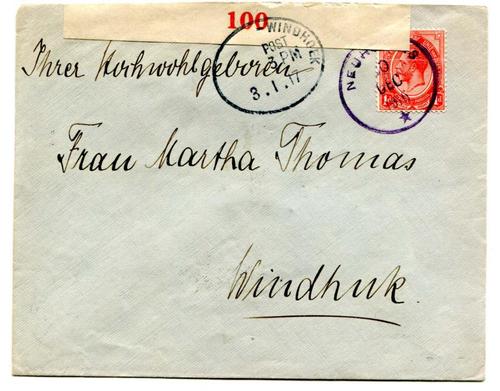 100
WINDHOEK
POST
3 PM
3.1.17
Ihrer Hochwohlgeboren
DEC
Frau Martha Thomas
Windhuk.